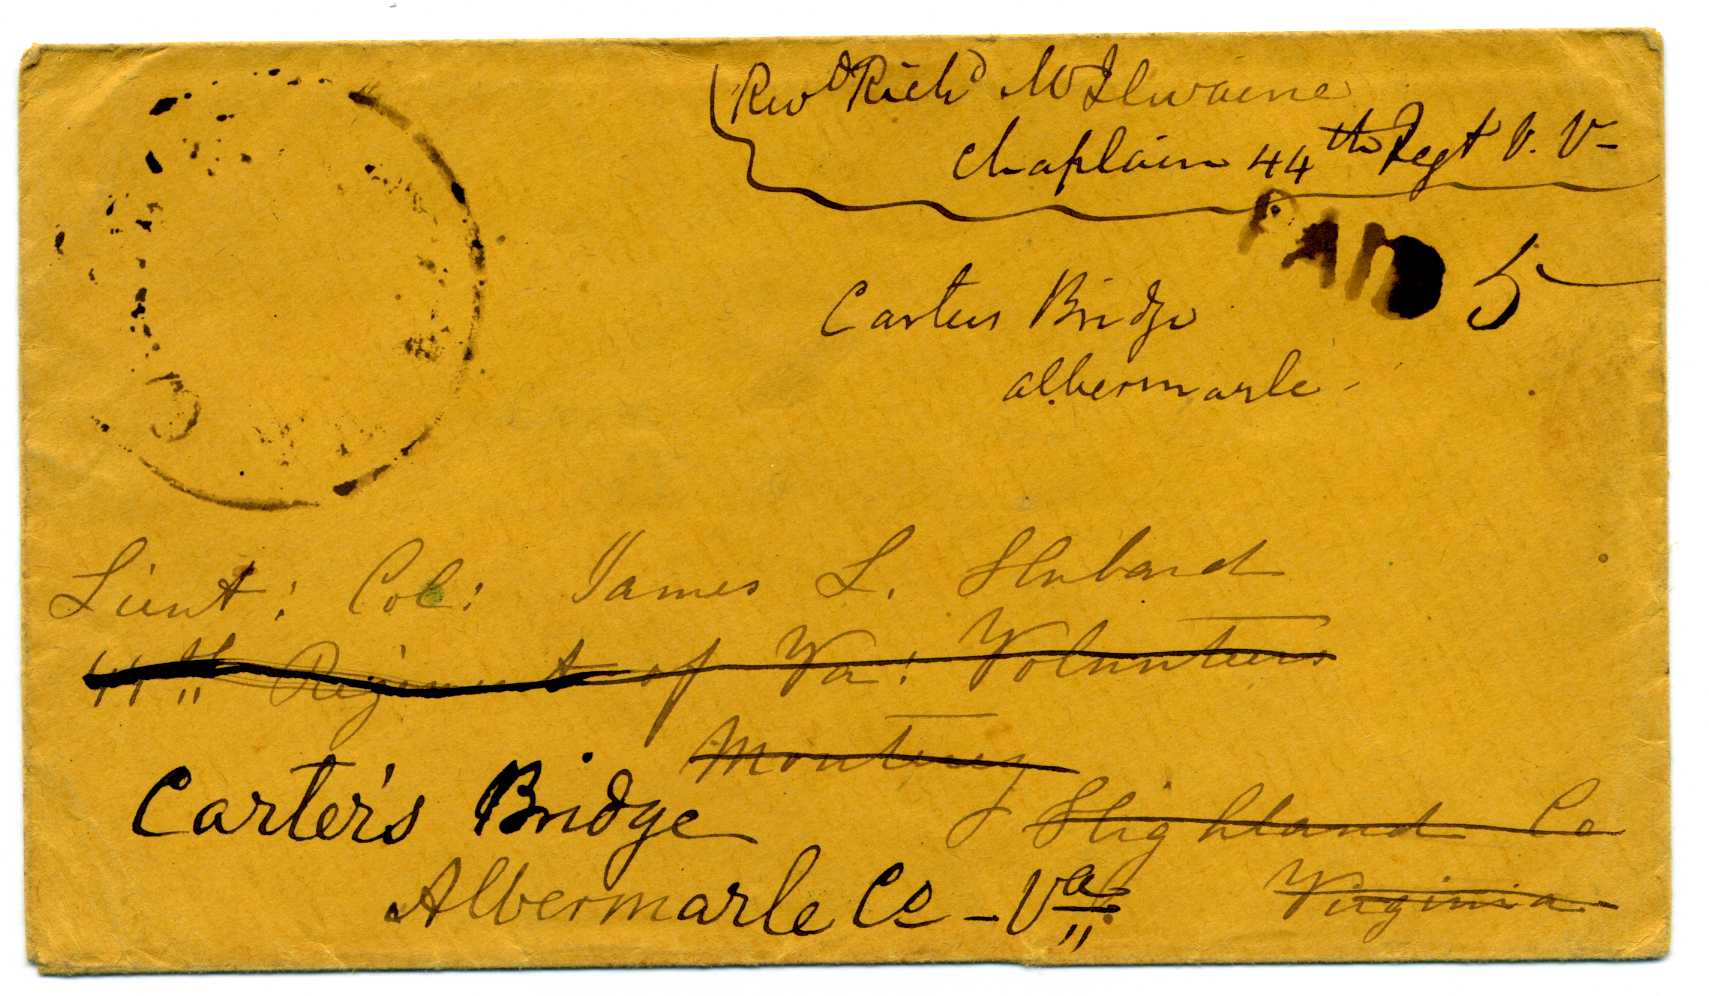 Revd Richd McIlwaine
Chaplain 44th Regt V. V-
PAID 5
Carters Bridge
Albermarle -
Lieut: Col: James L. Hubard
44th Regiment of Va: Volunteers
Monterey
Carter's Bridge
Highland Co
Albermarle Co - Va
Virginia